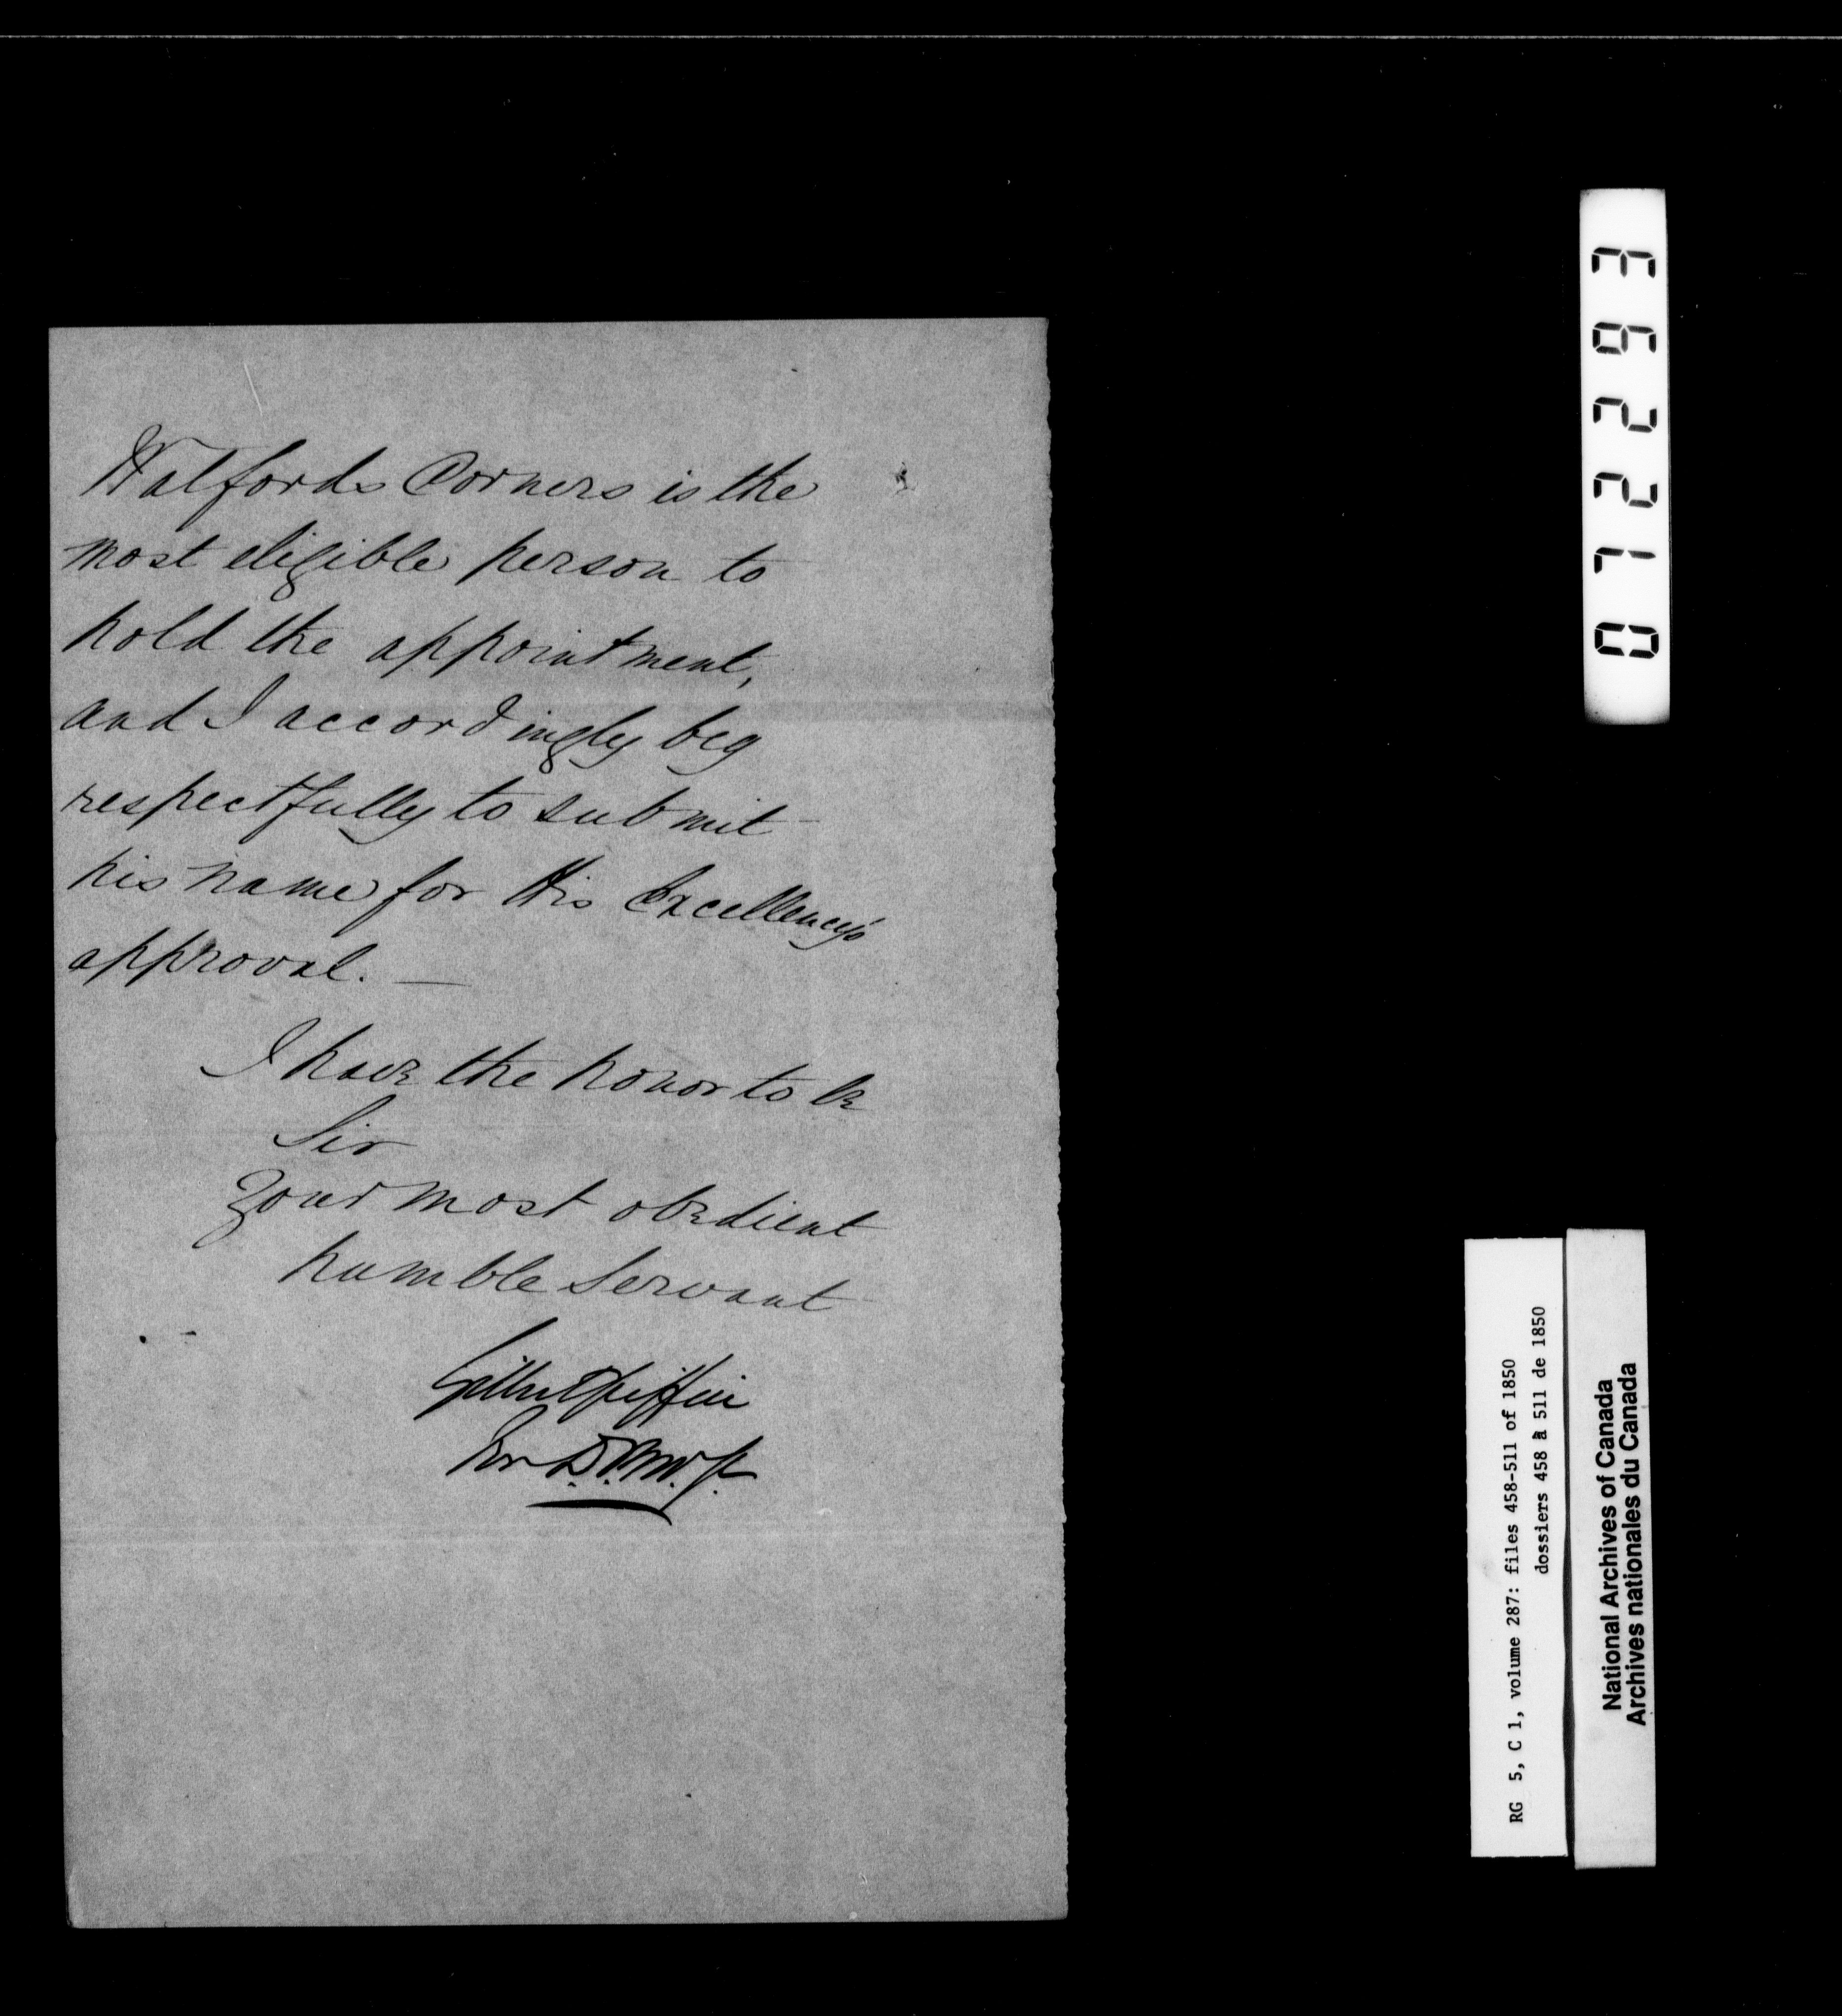 Walfords Corners is the
most eligible person to
hold the appointment,
and I accordingly beg
respectfully to submit
his name for His Excellency's
approval. —
I have the honor to be
Sir
Your most obedient
humble Servant
Griffin
071 2263
RG 5, C 1, volume 287: files 458-511 of 1850
dossiers 458 à 511 de 1850
National Archives of Canada
Archives nationales du Canada